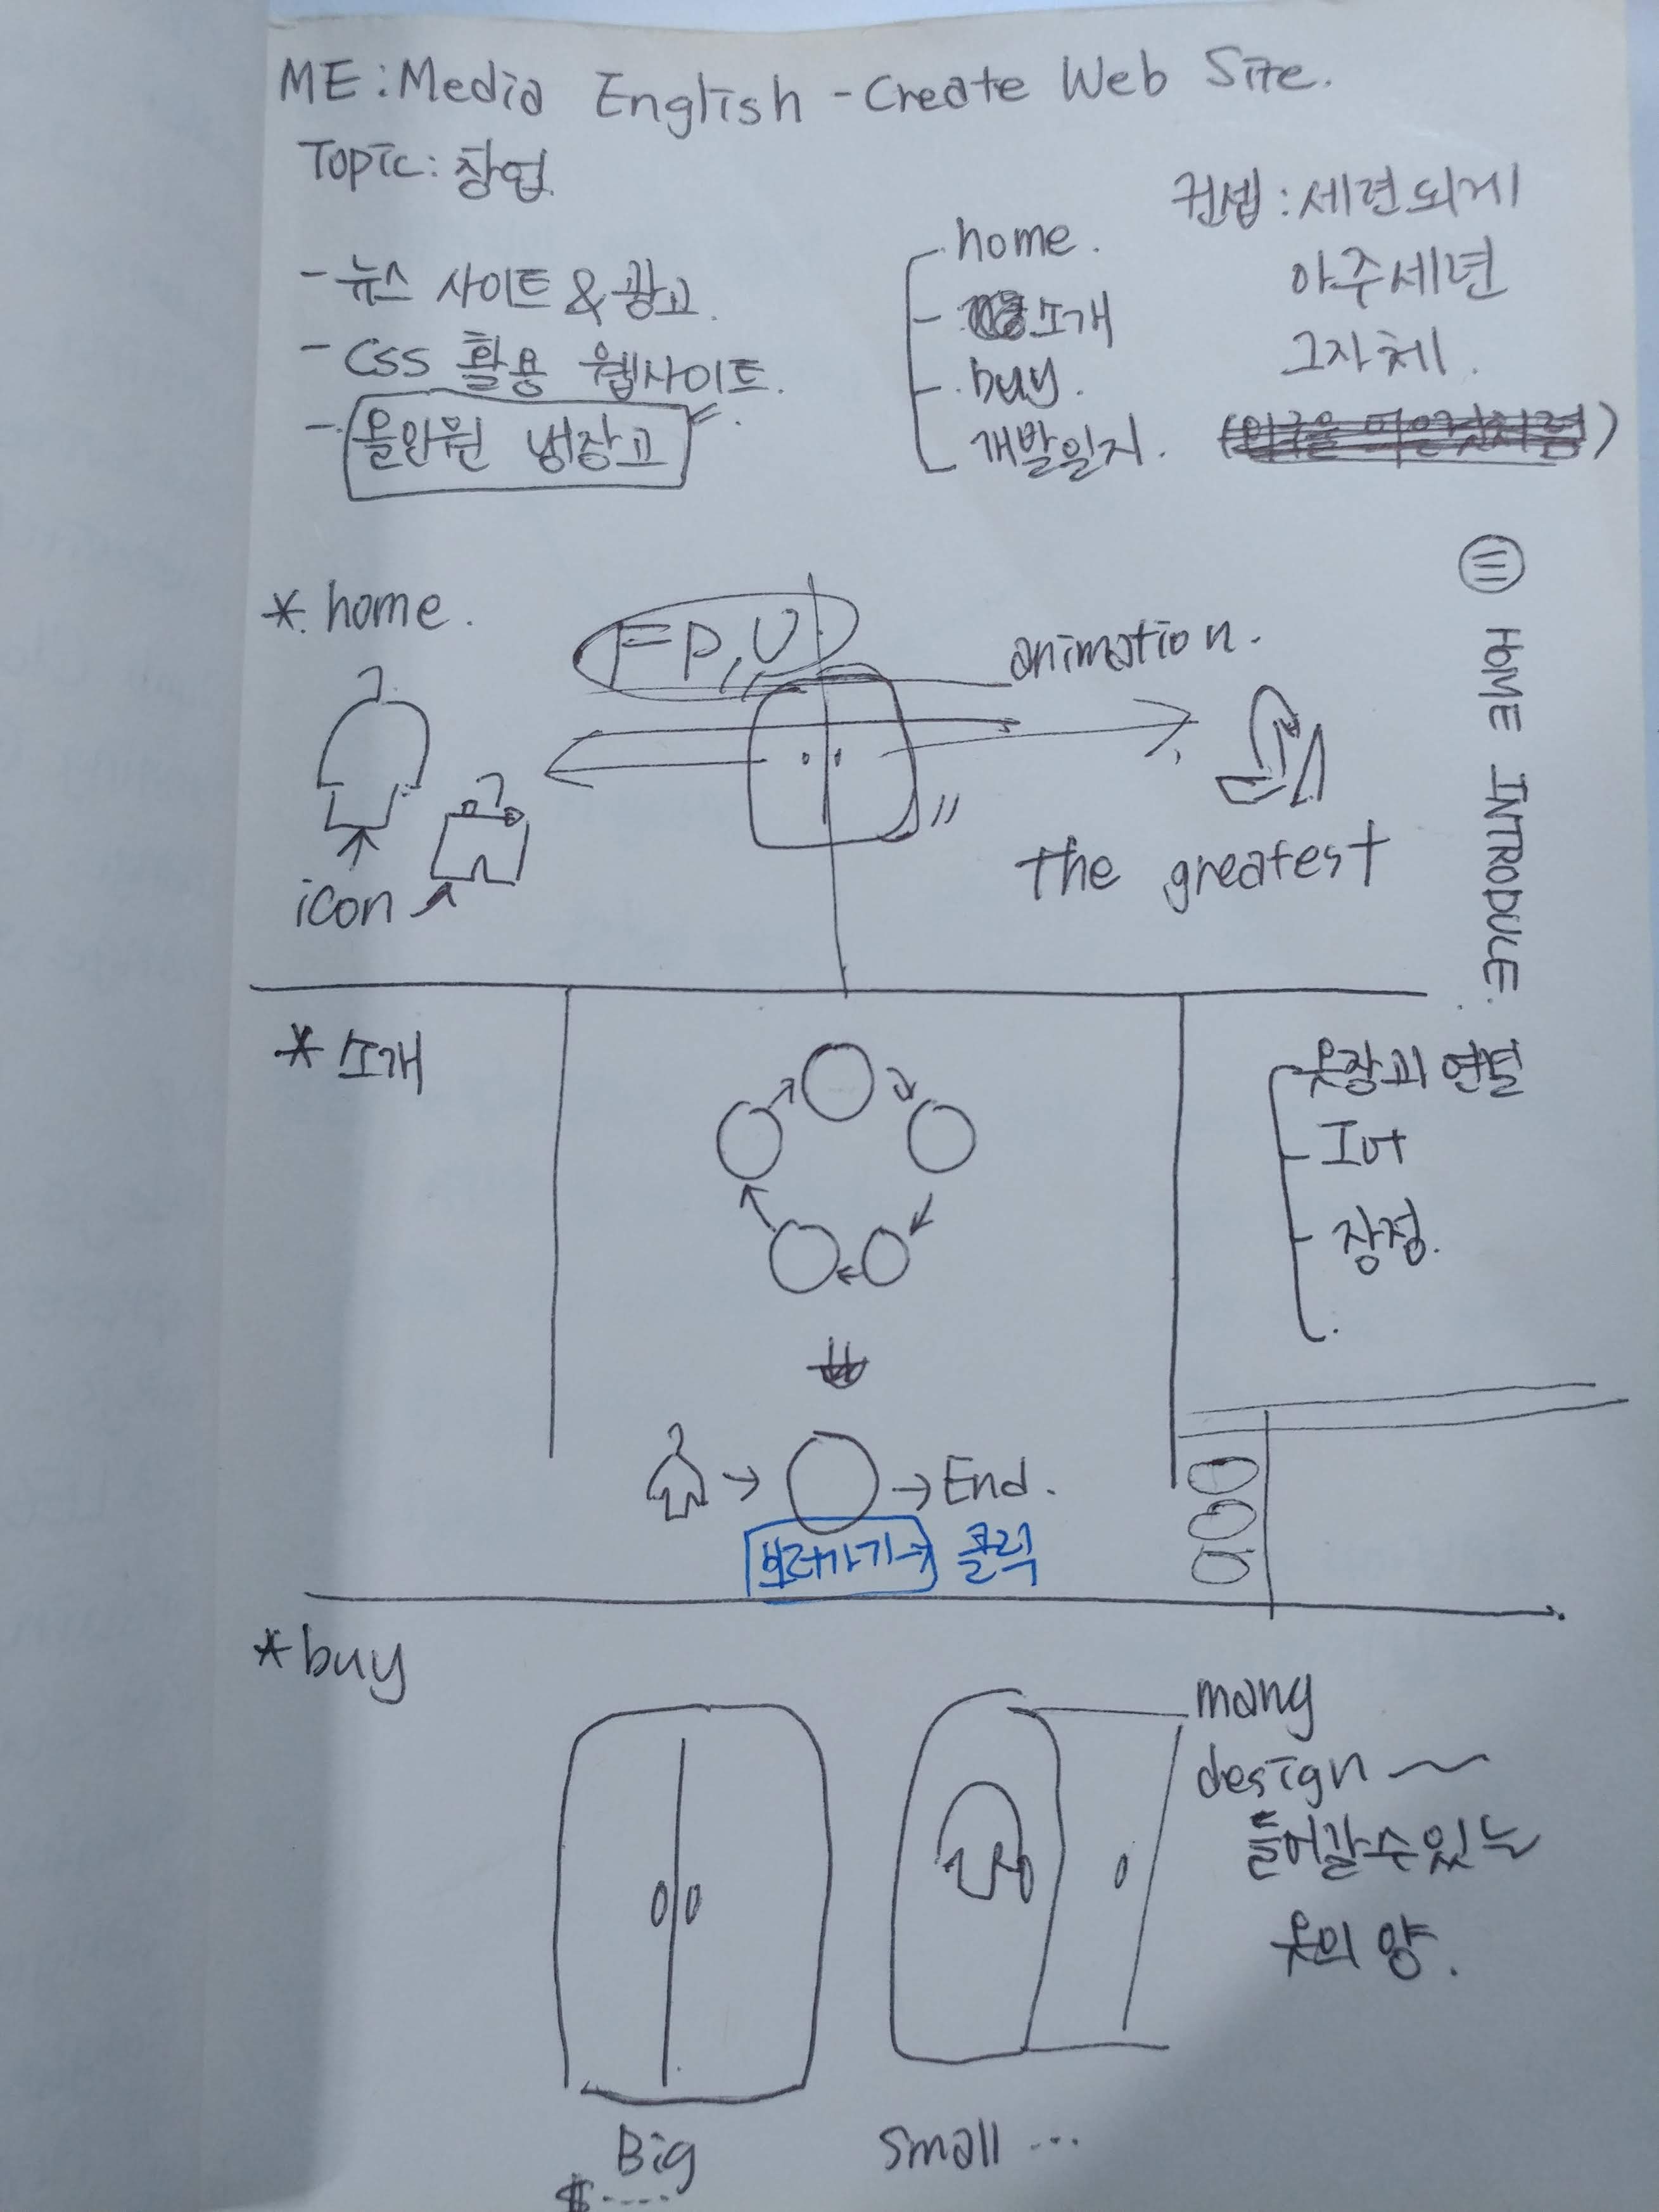 ME:Media English - Create Web Site.
Topic: 창업
컨셉 : 세련되게
아주세년
그자체.
- 뉴스 사이트 & 광고.
- CSS 활용 웹사이트.
- 올인원 냉장고
home.
- 소개
- buy.
개발일지.
* home.
FP,U
animation.
icon
the greatest
HOME INTRODUCE.
* 소개
옷장과 연결
- IoT
- 장점.
→ → End.
보러가기→ 클릭
* buy
many
design ~
들어갈수있는
옷의 양.
Big
$.....
Small ...